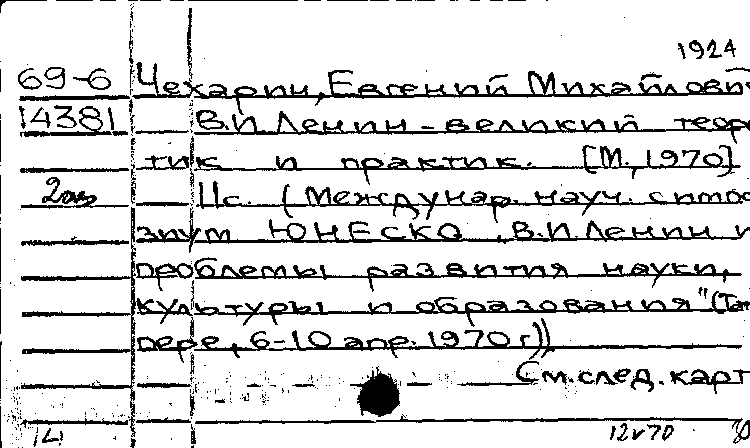 1924
69-6 Чехарин, Евгений Михайлови
14381 В.И. Ленин - великий теоре
тик и практик. [М., 1970]
2 экз 11с. (Междунар. науч. симпо
зиум ЮНЕСКО "В.И. Ленин и
проблемы развития науки,
культуры и образования" (Там
пере, 6-10 апр. 1970 г))
См. след. карт
12 V 70